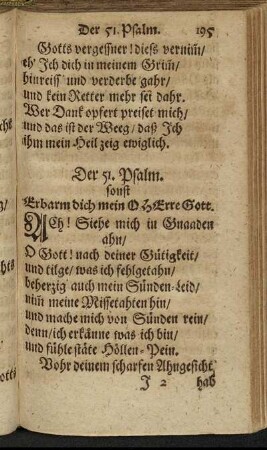 Der 51. Psalm. 195
Gotts vergessner! diess vernim̃/
eh' Ich dich in meinem Grim̃/
hinreiss' und verderbe gahr/
und kein Retter mehr sei dahr.
Wer Dank opfert preiset mich/
und das ist der Weeg/ daß Ich
ihm mein Heil zeig ewiglich.
Der 51. Psalm.
sonst
Erbarm dich mein O HErre Gott.
ACh! Siehe mich in Gnaaden
ahn/
O Gott! nach deiner Gütigkeit/
und tilge/ was ich fehlgetahn/
beherzig auch mein Sünden-Leid/
nim̃ meine Missetahten hin/
und mache mich von Sünden rein/
denn/ ich erkänne was ich bin/
und fühle stäte Höllen-Pein.
Vohr deinem scharfen Ahngesicht
J 2 hab